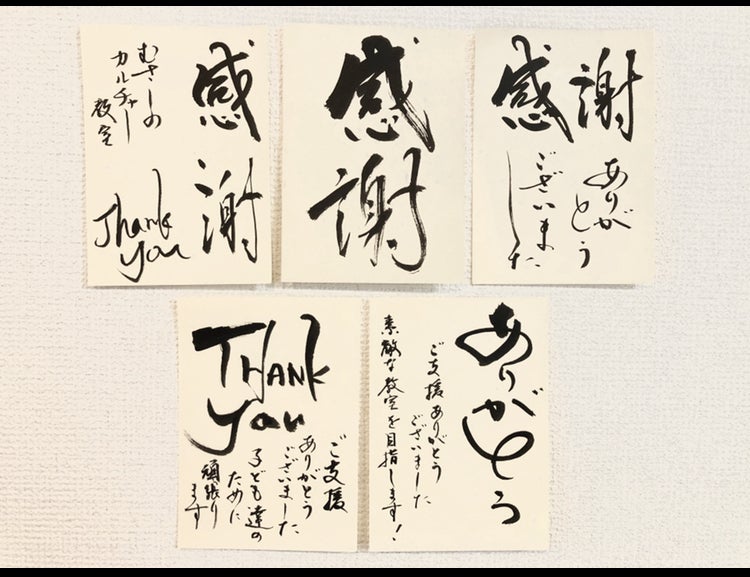 感謝
むさしの
カルチャー
教室
Thank
you
感謝
感謝
ありがとう
ございました
THANK
You
ご支援
ありがとう
ございました
子ども達の
ために
頑張り
ます
ありがとう
ご支援ありがとう
ございました
素敵な教室を目指します！